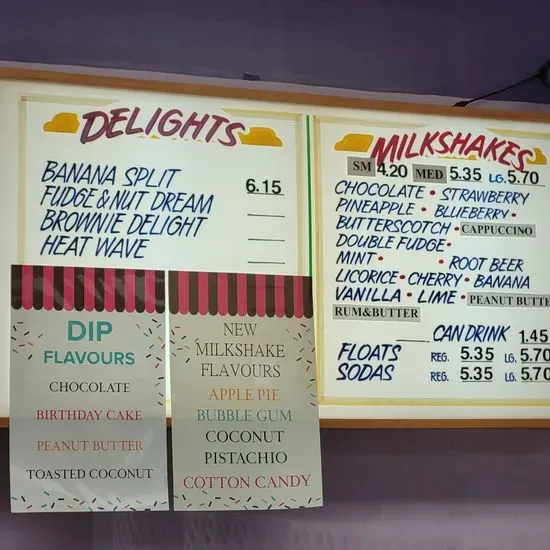 DELIGHTS
BANANA SPLIT 6.15
FUDGE & NUT DREAM
BROWNIE DELIGHT
HEAT WAVE
MILKSHAKES
SM 4.20 MED 5.35 LG. 5.70
CHOCOLATE • STRAWBERRY
PINEAPPLE • BLUEBERRY •
BUTTERSCOTCH • CAPPUCCINO
DOUBLE FUDGE •
MINT • • ROOT BEER
LICORICE • CHERRY • BANANA
VANILLA • LIME • PEANUT BUTTE
RUM&BUTTER
CAN DRINK 1.45
FLOATS REG. 5.35 LG. 5.70
SODAS REG. 5.35 LG. 5.70
DIP
FLAVOURS
CHOCOLATE
BIRTHDAY CAKE
PEANUT BUTTER
TOASTED COCONUT
NEW
MILKSHAKE
FLAVOURS
APPLE PIE
BUBBLE GUM
COCONUT
PISTACHIO
COTTON CANDY